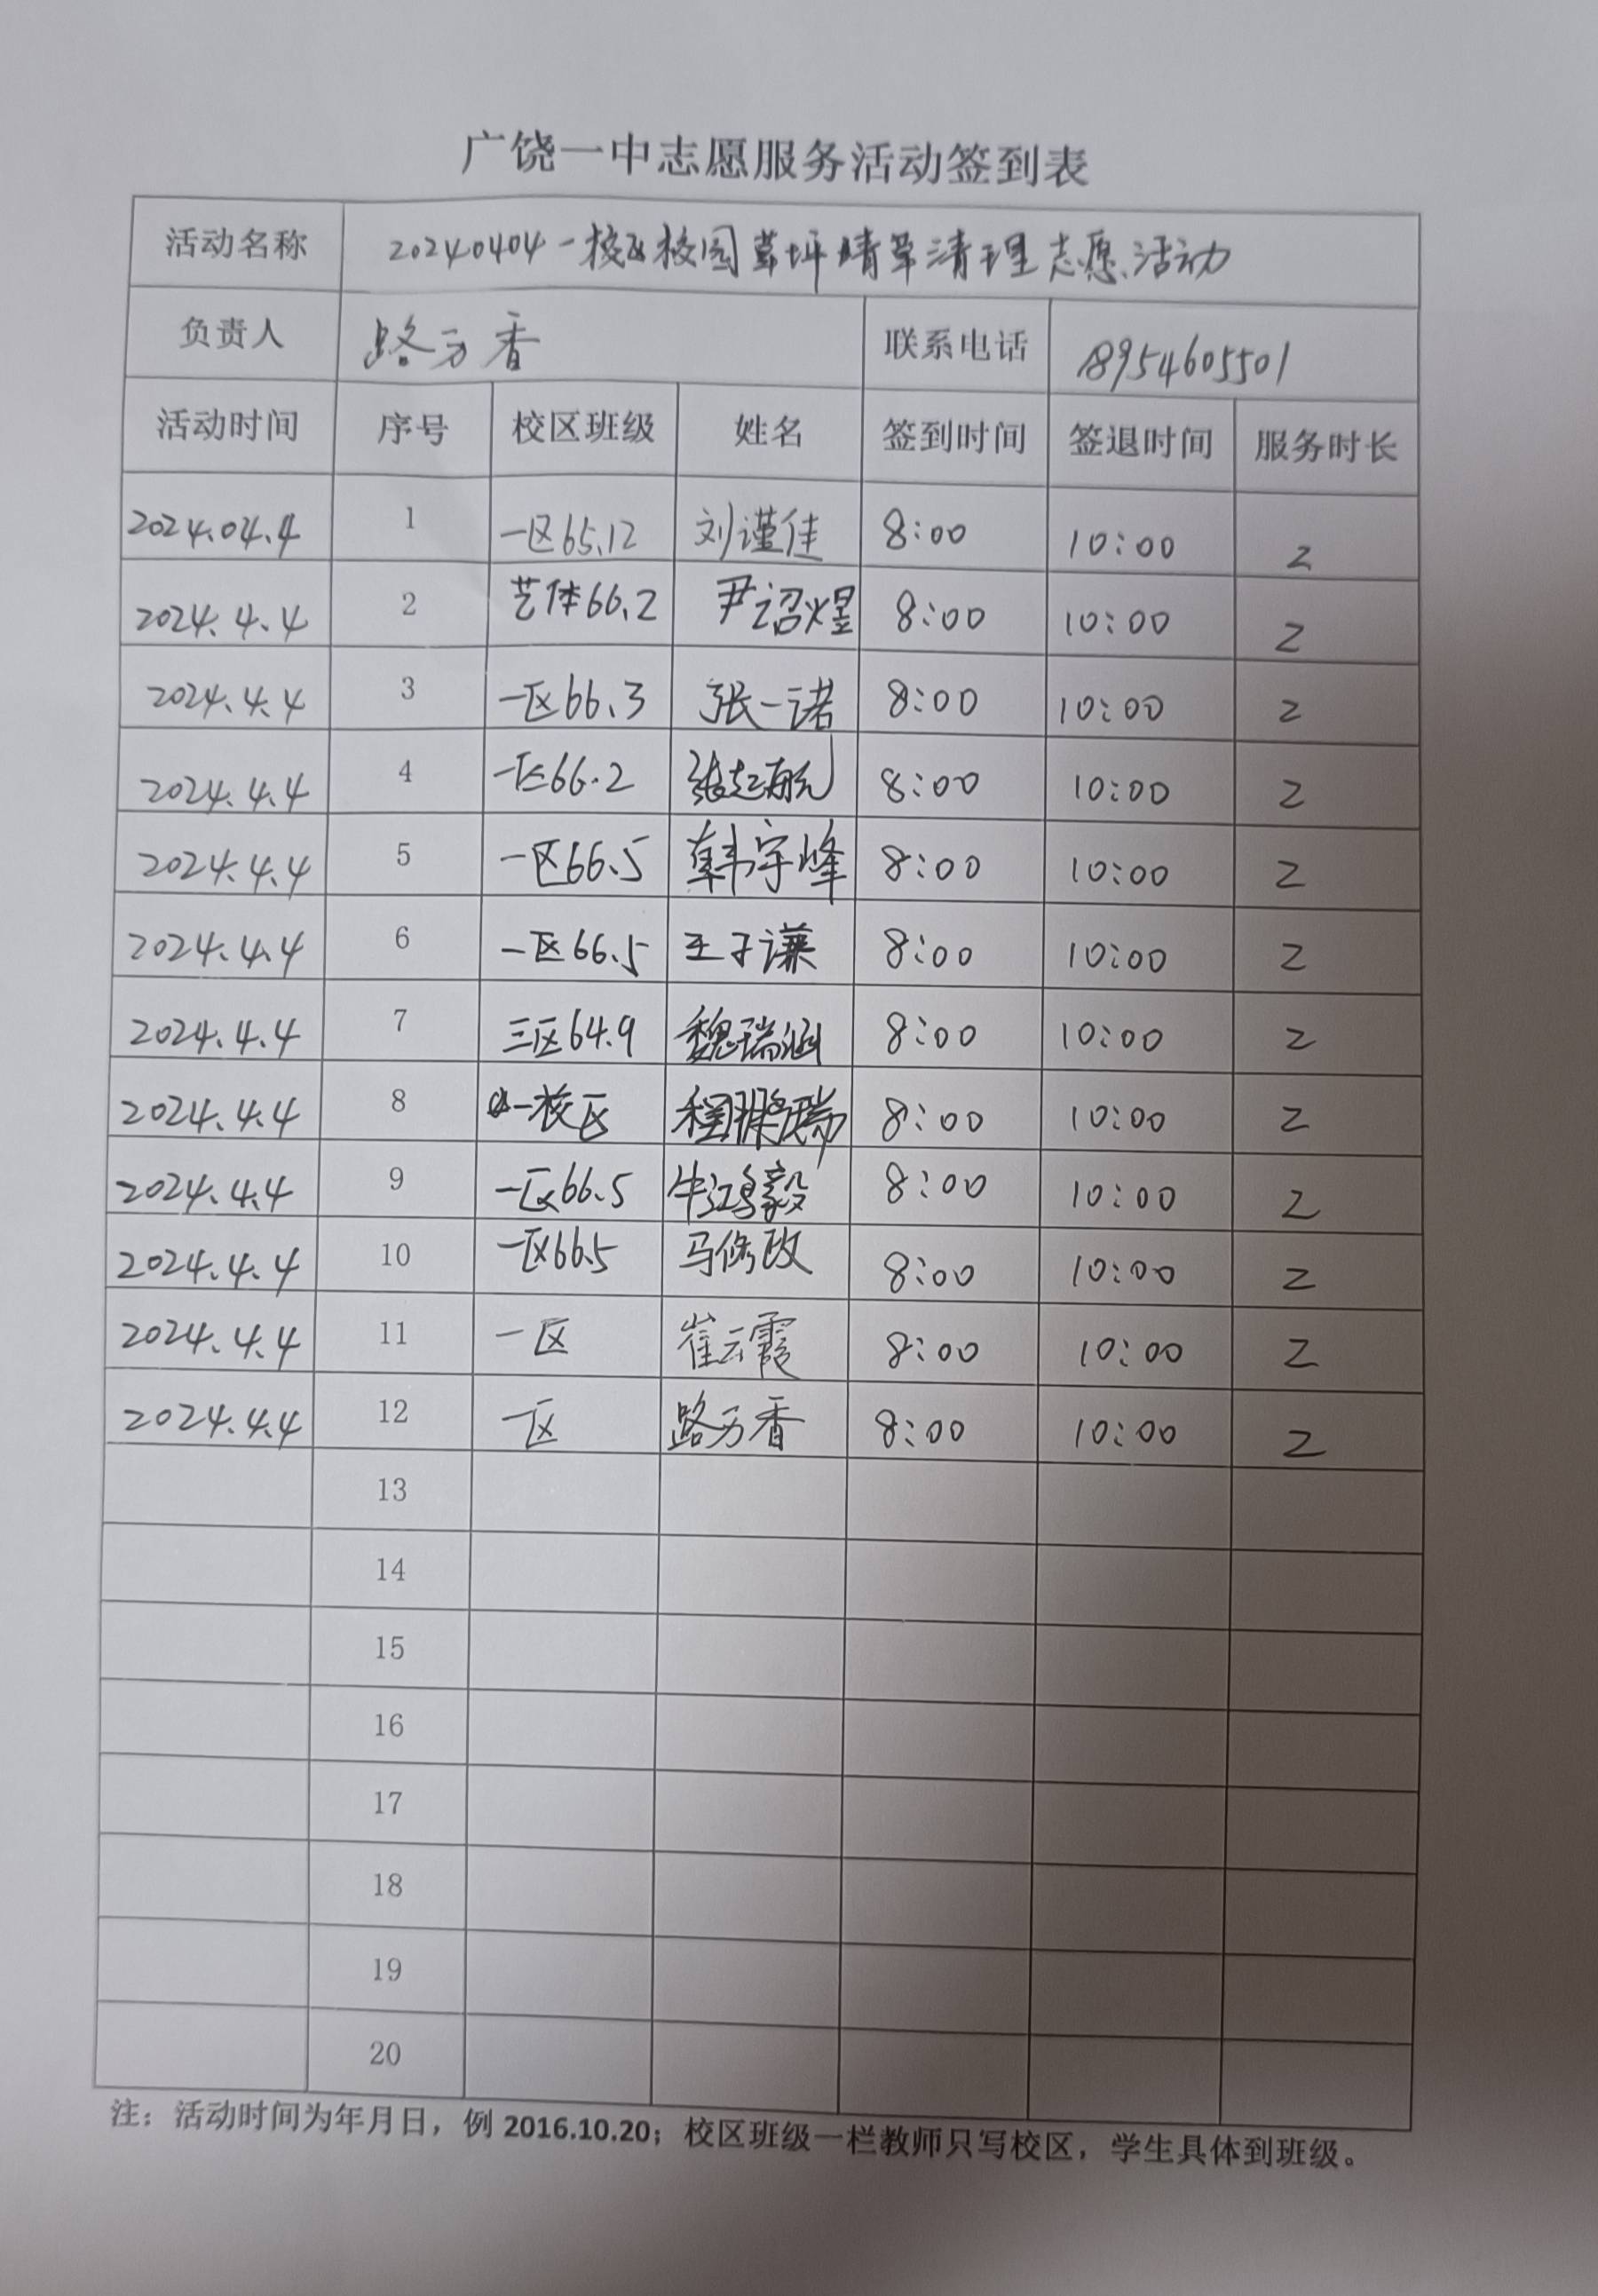 广饶一中志愿服务活动签到表
活动名称 20240404一校区校园草坪晴草清理志愿活动
负责人 路万香 联系电话 18954605501
活动时间 序号 校区班级 姓名 签到时间 签退时间 服务时长
2024.04.4 1 一区65.12 刘谨佳 8:00 10:00 2
2024.4.4 2 艺体66.2 尹诏煜 8:00 10:00 2
2024.4.4 3 一区66.3 张一诺 8:00 10:00 2
2024.4.4 4 一区66.2 张起航 8:00 10:00 2
2024.4.4 5 一区66.5 韩宇峰 8:00 10:00 2
2024.4.4 6 一区66.5 王子谦 8:00 10:00 2
2024.4.4 7 三区64.9 魏瑞涵 8:00 10:00 2
2024.4.4 8 一校区 8:00 10:00 2
2024.4.4 9 一区66.5 牛鸿毅 8:00 10:00 2
2024.4.4 10 一区66.5 马修政 8:00 10:00 2
2024.4.4 11 一区 崔云霞 8:00 10:00 2
2024.4.4 12 一区 路万香 8:00 10:00 2
13
14
15
16
17
18
19
20
注：活动时间为年月日，例 2016.10.20；校区班级一栏教师只写校区，学生具体到班级。